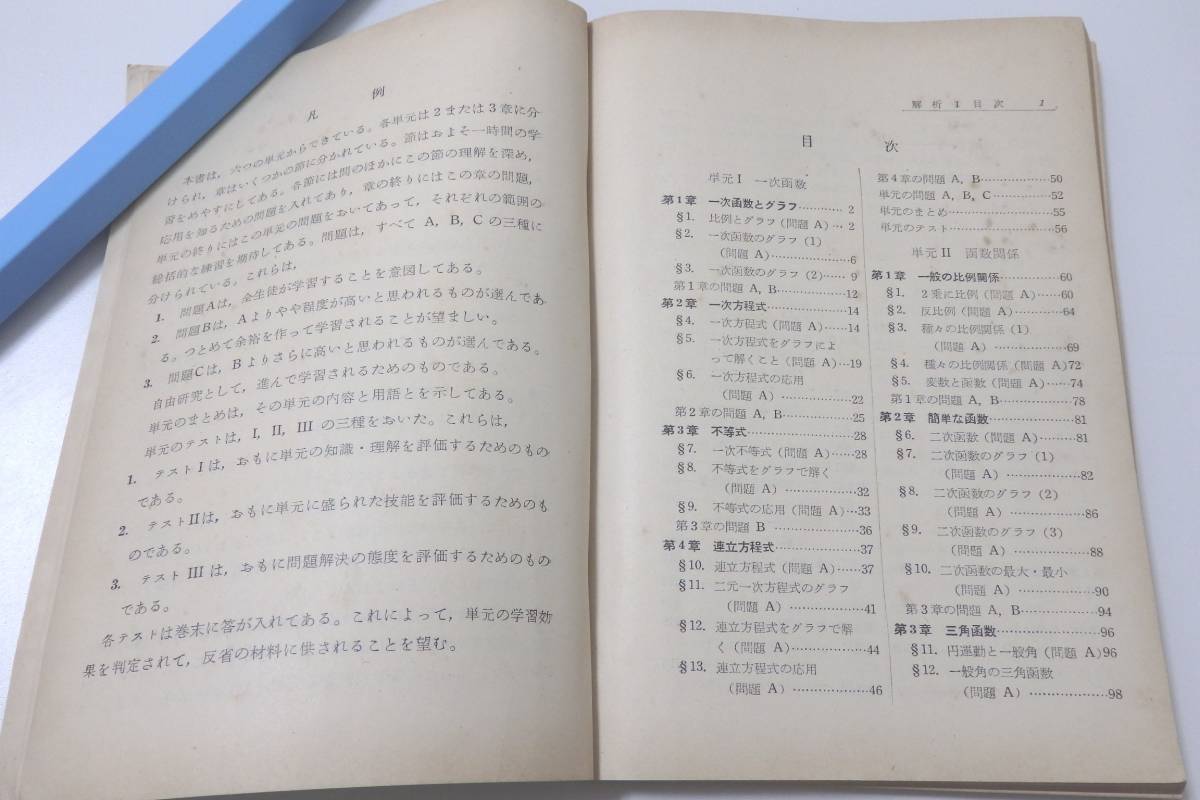 凡例
本書は，六つの単元からできている。各単元は2または3章に分
けられ，章はいくつかの節に分かれている。節はおよそ一時間の学
習をめやすにしてある。各節には問のほかにこの節の理解を深め，
応用を知るための問題を入れてあり，章の終りにはこの章の問題，
単元の終りにはこの単元の問題をおいてあって，それぞれの範囲の
総括的な練習を期待してある。問題は，すべて A，B，C の三種に
分けられている。これらは，
1. 問題Aは，全生徒が学習することを意図してある。
2. 問題Bは，Aよりやや程度が高いと思われるものが選んであ
る。つとめて余裕を作って学習されることが望ましい。
3. 問題Cは，Bよりさらに高いと思われるものが選んである。
自由研究として，進んで学習されるためのものである。
単元のまとめは，その単元の内容と用語とを示してある。
単元のテストは，I，II，III の三種をおいた。これらは，
1. テストIは，おもに単元の知識・理解を評価するためのもの
である。
2. テストIIは，おもに単元に盛られた技能を評価するためのも
のである。
3. テスト III は，おもに問題解決の態度を評価するためのもの
である。
各テストは巻末に答が入れてある。これによって，単元の学習効
果を判定されて，反省の材料に供されることを望む。
解析 I 目次 1
目次
単元I 一次函数
第1章 一次函数とグラフ…………2
§1. 比例とグラフ(問題A)…2
§2. 一次函数のグラフ(1)
(問題A)………………6
§3. 一次函数のグラフ(2)……9
第1章の問題 A，B……………12
第2章 一次方程式………………14
§4. 一次方程式(問題A)……14
§5. 一次方程式をグラフによ
って解くこと(問題A)…19
§6. 一次方程式の応用
(問題A)………………22
第2章の問題 A，B……………25
第3章 不等式……………………28
§7. 一次不等式(問題A)……28
§8. 不等式をグラフで解く
(問題A)………………32
§9. 不等式の応用(問題A)…33
第3章の問題 B…………………36
第4章 連立方程式………………37
§10. 連立方程式(問題A)……37
§11. 二元一次方程式のグラフ
(問題A)………………41
§12. 連立方程式をグラフで解
く(問題A)………………44
§13. 連立方程式の応用
(問題A)………………46
第4章の問題 A，B……………50
単元の問題 A，B，C……………52
単元のまとめ……………………55
単元のテスト……………………56
単元II 函数関係
第1章 一般の比例関係…………60
§1. 2乗に比例(問題A)……60
§2. 反比例(問題A)…………64
§3. 種々の比例関係(1)
(問題A)………………69
§4. 種々の比例関係(問題A)72
§5. 変数と函数(問題A)……74
第1章の問題 A，B……………78
第2章 簡単な函数………………81
§6. 二次函数(問題A)………81
§7. 二次函数のグラフ(1)
(問題A)………………82
§8. 二次函数のグラフ(2)
(問題A)………………86
§9. 二次函数のグラフ(3)
(問題A)………………88
§10. 二次函数の最大・最小
(問題A)………………90
第3章の問題 A，B……………94
第3章 三角函数…………………96
§11. 円運動と一般角(問題A)96
§12. 一般角の三角函数
(問題A)………………98